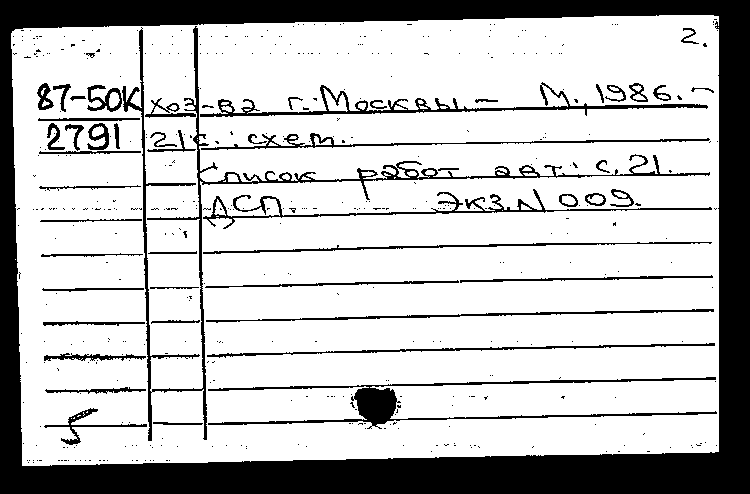 2.
87-50К хоз-ва г. Москвы. – М., 1986. –
2791 21 с. : схем.
Список работ авт.: с. 21.
ДСП. Экз. N 009.
5